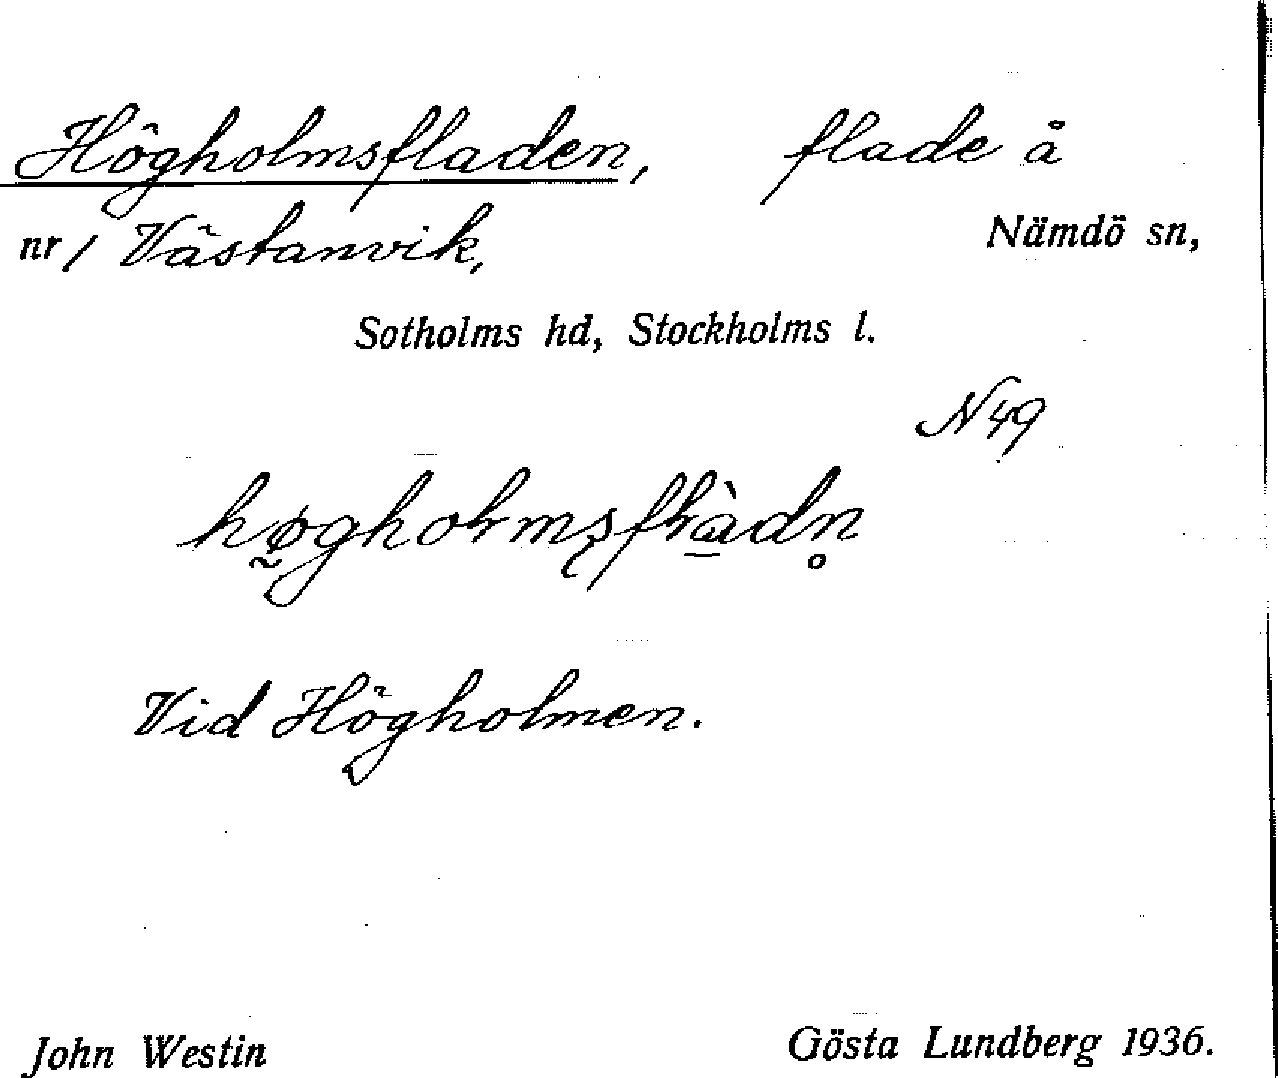 Högholmsfladen, flade å
nr 1 Västanvik, Nämdö sn,
Sotholms hd, Stockholms l.
N 49
Vid Högholmen.
John Westin Gösta Lundberg 1936.